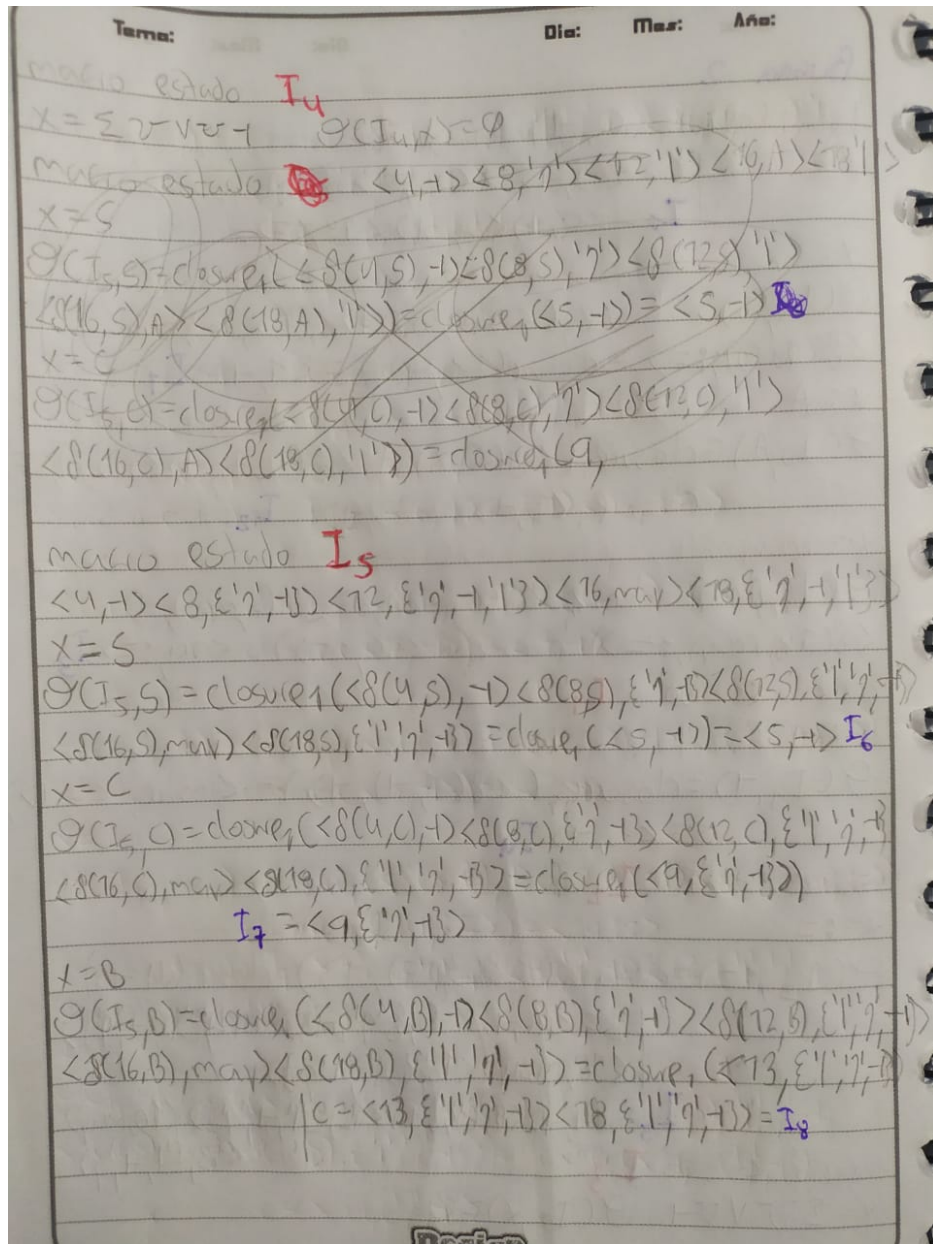 Tema: Dia: Mes: Año:
macro estado I4
X = Σ ∪ V ∪ -1 θ(I4,X)=φ
macro estado <4,-1><8,'?'><12,'|'><16,A><18'|'>
X=S
θ(I5,S)=closure1(<δ(4,S),-1><δ(8,S),'?'><δ(12,S)'|'>
<δ(16,S),A><δ(18,A),'|'>)=closure1(<5,-1>)=<5,-1>
X=C
θ(I5,C)=closure1(<δ(4,C),-1><δ(8,C),'?'><δ(12,C),'|'>
<δ(16,C),A><δ(18,C),'|'>)=closure1(9,
macro estado I5
<4,-1><8,{'?',-1}><12,{'?',-1,'|'}><16,may><18,{'?',-1,'|'}>
X=S
θ(I5,S)=closure1(<δ(4,S),-1><δ(8,S),{'?',-1}><δ(12,S),{'|','?',-1}>
<δ(16,S),may><δ(18,S),{'|','?',-1}>=closure1(<5,-1>)=<5,-1> I6
X=C
θ(I5,C)=closure1(<δ(4,C),-1><δ(8,C),{'?',-1}><δ(12,C),{'|','?',-1}
<δ(16,C),may><δ(18,C),{'|','?',-1}>=closure1(<9,{'?',-1}>)
I7=<9,{'?',-1}>
X=B
θ(I5,B)=closure1(<δ(4,B),-1><δ(8,B),{'?',-1}><δ(12,B),{'|','?',-1}>
<δ(16,B),may><δ(18,B),{'|','?',-1}>=closure1(<13,{'|','?',-1}
|C=<13,{'|','?',-1}><18,{'|','?',-1}>=I8